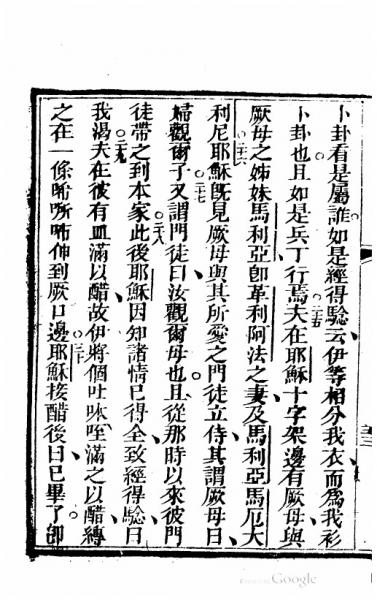 卜卦看是屬誰如是經得騐云伊等相分我衣而為我衫
卜卦也且如是兵丁行焉二五夫在耶穌十字架邊有厥母與
厥母之姊妹馬利亞卽革利阿法之妻及馬利亞馬厄大
利尼二六耶穌旣見厥母與其所愛之門徒立侍其謂厥母曰
婦觀爾子二七又謂門徒曰汝觀爾母也且從那時以來彼門
徒帶之到本家二八此後耶穌因知諸情已得全致經得騐曰
我渴二九夫在彼有皿滿以醋故伊將個吐吥咥滿之以醋縛
之在一條唏咘伸到厥口邊三十耶穌接醋後曰已畢了卽
Google